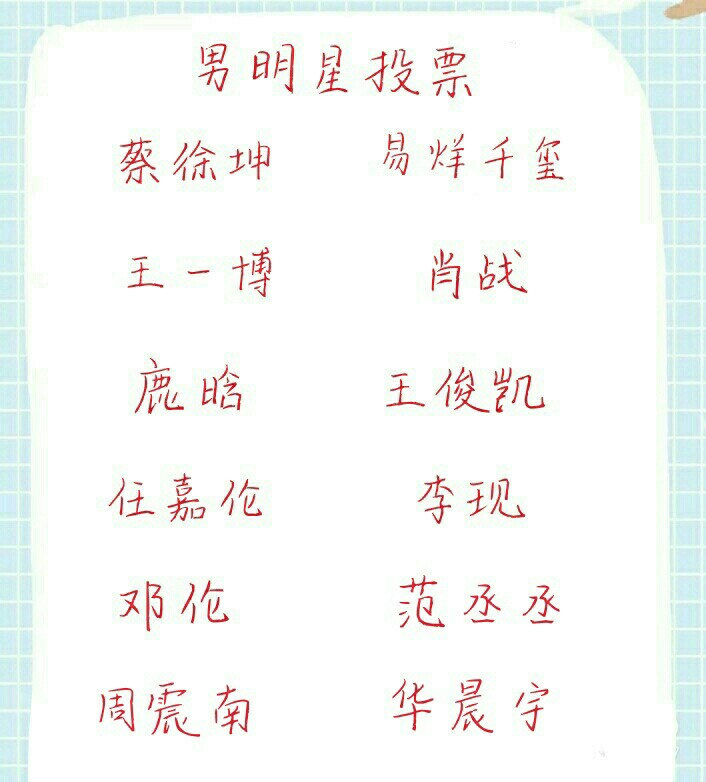 男明星投票
蔡徐坤 易烊千玺
王一博 肖战
鹿晗 王俊凯
任嘉伦 李现
邓伦 范丞丞
周震南 华晨宇